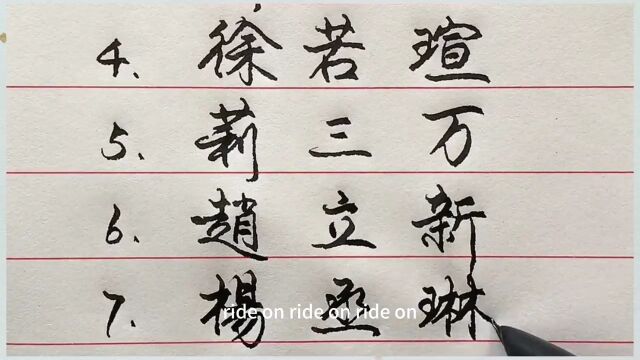 4、徐若瑄
5、莉三万
6、趙立新
7、楊丞琳
ride on ride on ride on